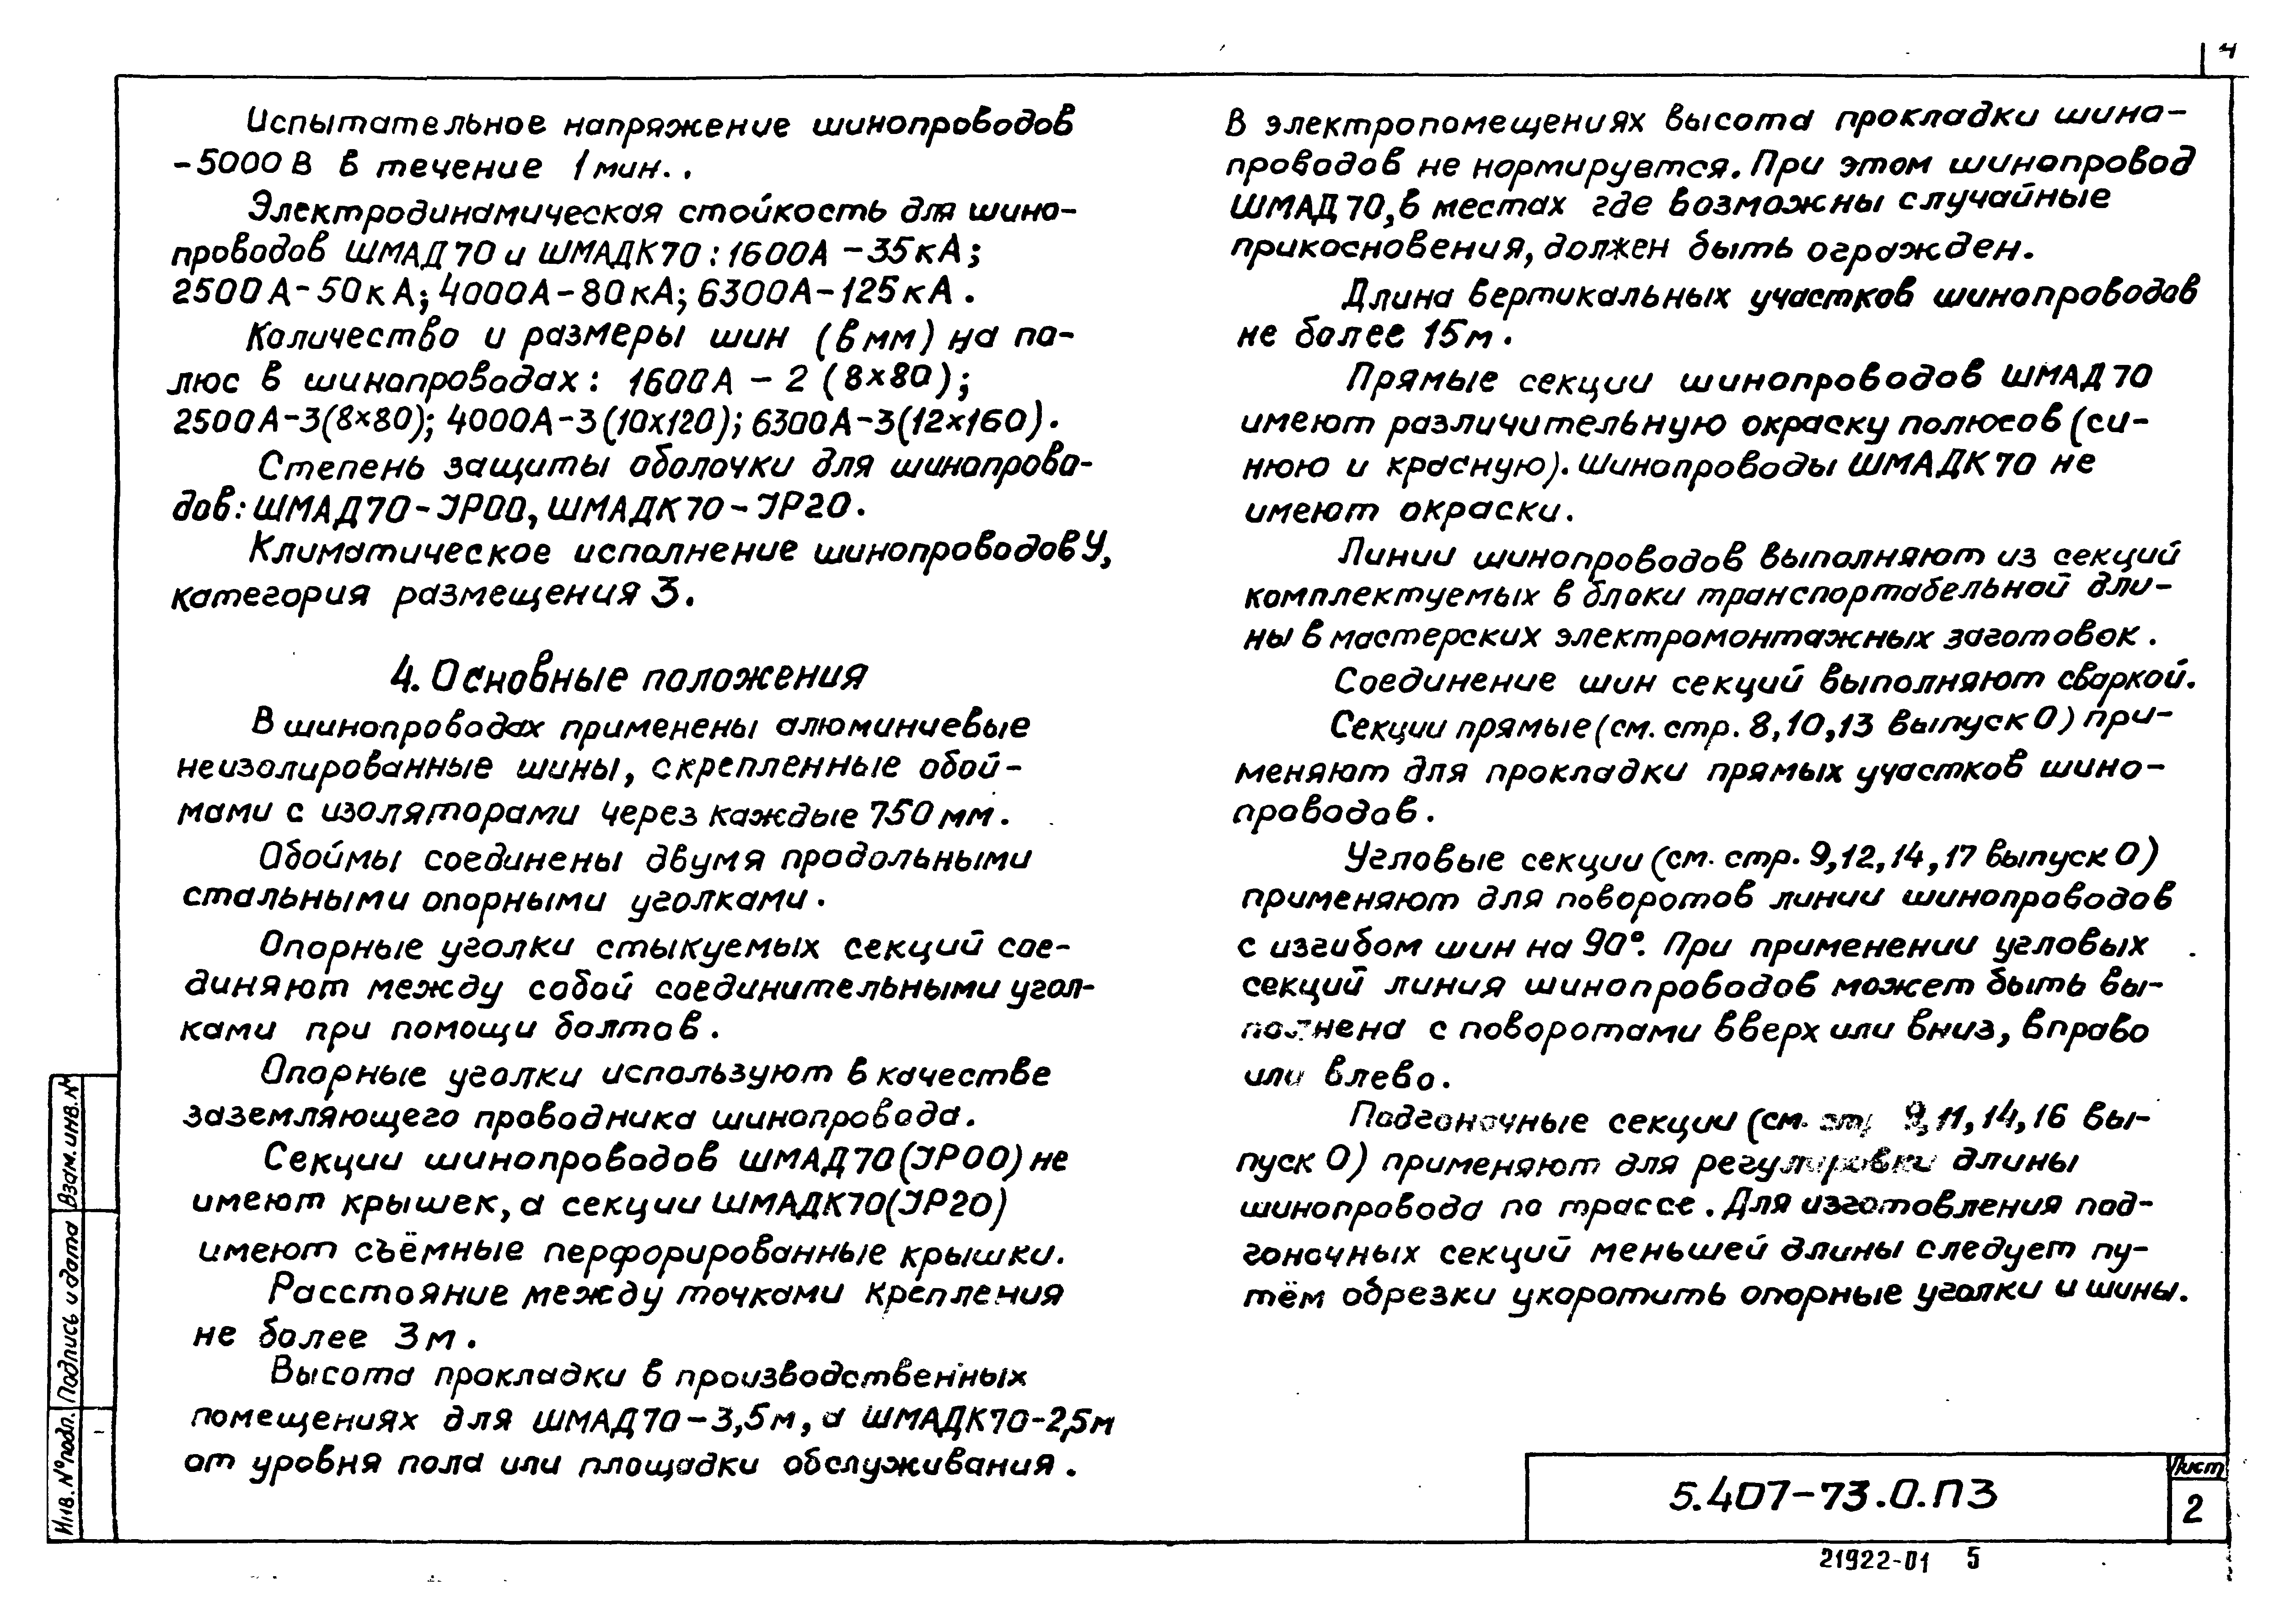 4
Испытательное напряжение шинопроводов
-5000 В в течение 1 мин. .
Электродинамическая стойкость для шино-
проводов ШМАД 70 и ШМАДК70 : 1600А - 35 кА ;
2500 А - 50 к А; 4000А - 80 кА; 6300А - 125 кА .
Количество и размеры шин (в мм) на по-
люс в шинопроводах : 1600 А - 2 (8×80) ;
2500 А-3(8×80); 4000А-3 (10×120); 6300А-3(12×160) .
Степень защиты оболочки для шинопрово-
дов: ШМАД70 - JP00, ШМАДК70 - JP20.
Климатическое исполнение шинопроводов У,
категория размещения 3.
4. Основные положения
В шинопроводах применены алюминиевые
неизолированные шины, скрепленные обой-
мами с изоляторами через каждые 750 мм .
Обоймы соединены двумя продольными
стальными опорными уголками .
Опорные уголки стыкуемых секций сое-
диняют между собой соединительными угол-
ками при помощи болтов .
Опорные уголки используют в качестве
заземляющего проводника шинопровода .
Секции шинопроводов ШМАД 70 (JP00) не
имеют крышек, а секции ШМАДК70(JP20)
имеют съёмные перфорированные крышки.
Расстояние между точками крепления
не более 3 м .
Высота прокладки в производственных
помещениях для ШМАД70 - 3,5 м, а ШМАДК70-2,5м
от уровня пола или площадки обслуживания .
В электропомещениях высота прокладки шино-
проводов не нормируется. При этом шинопровод
ШМАД 70, в местах где возможны случайные
прикосновения, должен быть огражден.
Длина вертикальных участков шинопроводов
не более 15 м .
Прямые секции шинопроводов ШМАД 70
имеют различительную окраску полюсов (си-
нюю и красную). Шинопроводы ШМАДК 70 не
имеют окраски.
Линии шинопроводов выполняют из секций
комплектуемых в блоки транспортабельной дли-
ны в мастерских электромонтажных заготовок .
Соединение шин секций выполняют сваркой.
Секции прямые (см. стр. 8, 10, 13 выпуск 0) при-
меняют для прокладки прямых участков шино-
проводов .
Угловые секции (см. стр. 9, 12, 14, 17 выпуск 0)
применяют для поворотов линии шинопроводов
с изгибом шин на 90°. При применении угловых
секций линия шинопроводов может быть вы-
полнена с поворотами вверх или вниз, вправо
или влево .
Подгоночные секции (см. стр. 9, 11, 14, 16 вы-
пуск 0) применяют для регулировки длины
шинопровода по трассе . Для изготовления под-
гоночных секций меньшей длины следует пу-
тём обрезки укоротить опорные уголки и шины.
Инв. № подл. Подпись и дата Взам. инв. №
5.407-73.0.ПЗ
Лист
2
21922-01 5